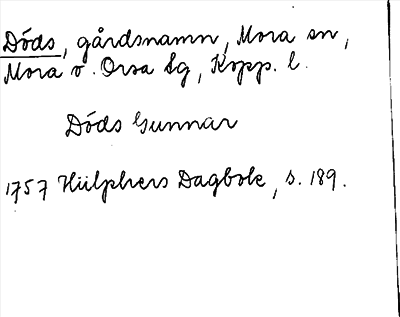 Döds, gårdsnamn, Mora sn,
Mora o. Orsa tg, Kopp. l.
Döds Gunnar
1757 Hülphers Dagbok, s. 189.